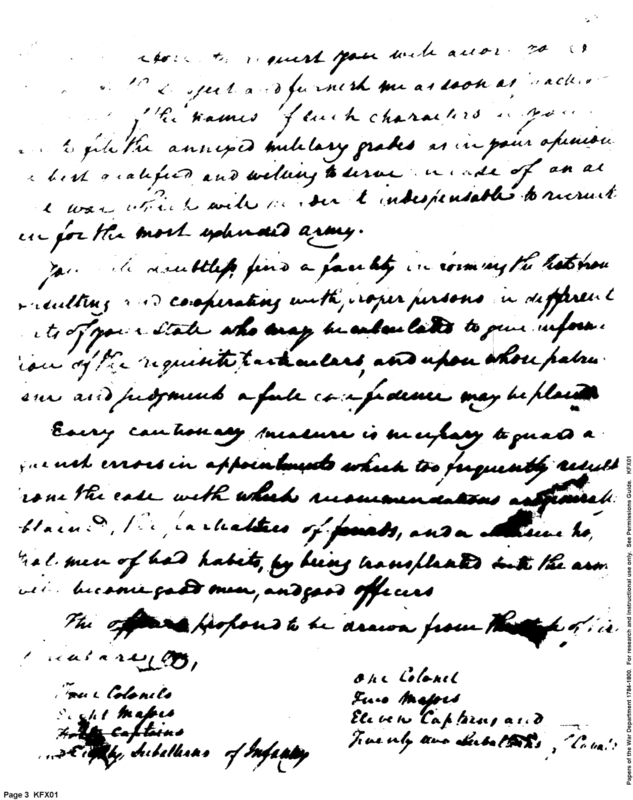 request you will
the subject and furnish me as soon as
of the names of such characters
to fill the annexed military grades as in your opinion
best qualified and willing to serve in case of an ac
war which will render it indespensable to recruit
for the most extended army.
doubtless, find a facility in forming the
sulting and cooperating with, proper persons in different
of your State who may be calculated to give inform
ion of the requisite particulars, and upon whose patrio
sm and judgment a full confidence may be placed
Every cautionary measure is necessary to guard a
gainst errors in appointments which too frequently result
from the ease with which recommendations are
btained, the partialities of friends, and a
that men of bad habits, by being transplanted into the arm
will become good men, and good officers
The officers proposed to be drawn from the State of Vir
are
Four Colonels
Eight Majors
Forty Captains
and Eighty Subalterns of Infantry
One Colonel
Two Majors
Eleven Captains and
Twenty two Subalterns, of Caval
Page 3 KFX01
Papers of the War Department 1784-1800. For research and instructional use only. See Permissions Guide. KFX01